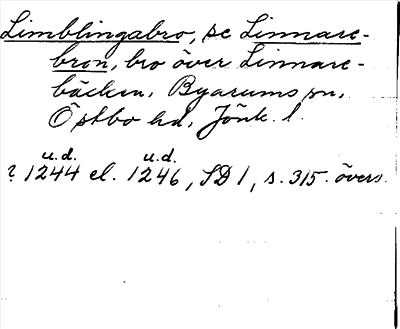 Limblingabro, se Linnare-
bron, bro över Linnare-
bäcken, Byarums sn,
Östbo hd, Jönk. l.
u.d. u.d.
? 1244 el. 1246, SD 1, s. 315. övers.